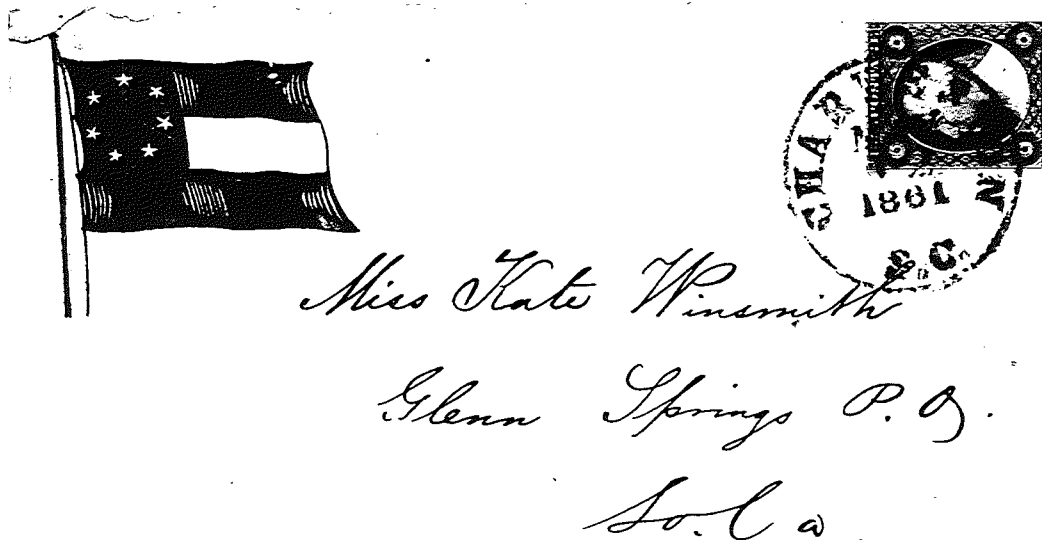 CHAR N
1861
S.C.
Miss Kate Winsmith
Glenn Springs P. O.
So. Ca